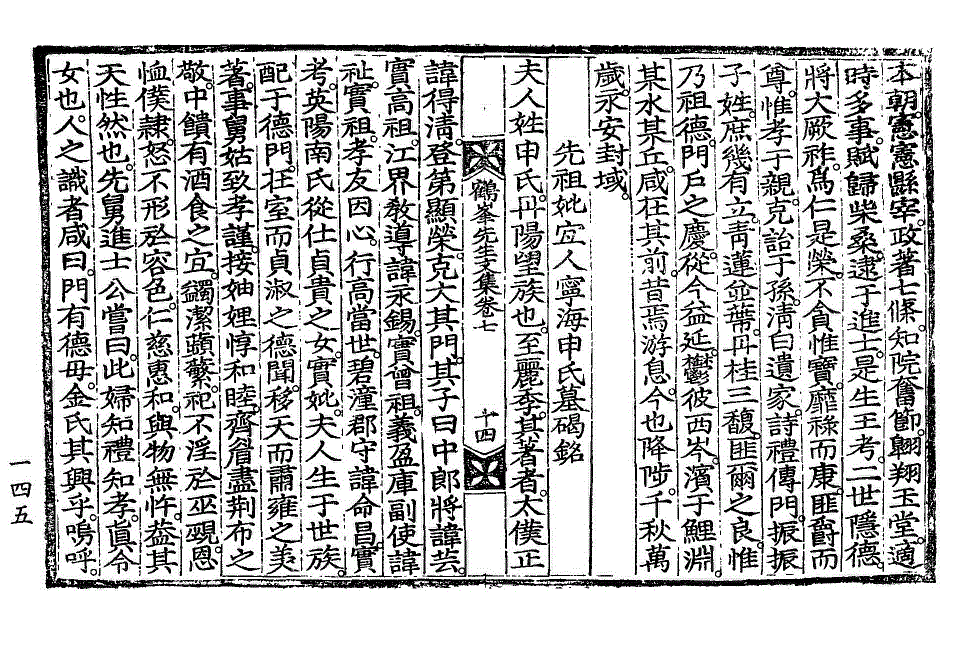 本朝。憲憲縣宰。政著七條。知院奮節。翺翔玉堂。適
時多事。賦歸柴桑。逮于進士。是生王考。二世隱德。
將大厥祚。爲仁是榮。不貪惟寶。靡祿而康。匪爵而
尊。惟孝于親。克詒于孫。淸白遺家。詩禮傳門。振振
子姓。庶幾有立。靑蓮並蔕。丹桂三馥。匪爾之良。惟
乃祖德。門戶之慶。從今益延。鬱彼西岑。濱于鯉淵。
某水某丘。咸在其前。昔焉游息。今也降陟。千秋萬
歲。永安封域。
先祖妣宜人寧海申氏墓碣銘
夫人姓申氏。丹陽望族也。至麗季。其著者。太僕正
鶴峯先生文集卷七
十四
諱得淸。登第顯榮。克大其門。其子曰中郞將諱芸。
實高祖。江界敎導諱永錫。實曾祖。義盈庫副使諱
祉。實祖。孝友因心。行高當世。碧潼郡守諱命昌。實
考。英陽南氏從仕貞貴之女。實妣。夫人生于世族。
配于德門。在室而貞淑之德聞。移天而肅雍之美
著。事舅姑致孝謹。接妯娌惇和睦。齊眉盡荆布之
敬。中饋有酒食之宜。蠲潔蘋蘩。祀不淫於巫覡。恩
恤僕隷。怒不形於容色。仁慈惠和。與物無忤。蓋其
天性然也。先舅進士公嘗曰。此婦知禮知孝。眞令
女也。人之識者咸曰。門有德母。金氏其興乎。嗚呼。
一四五